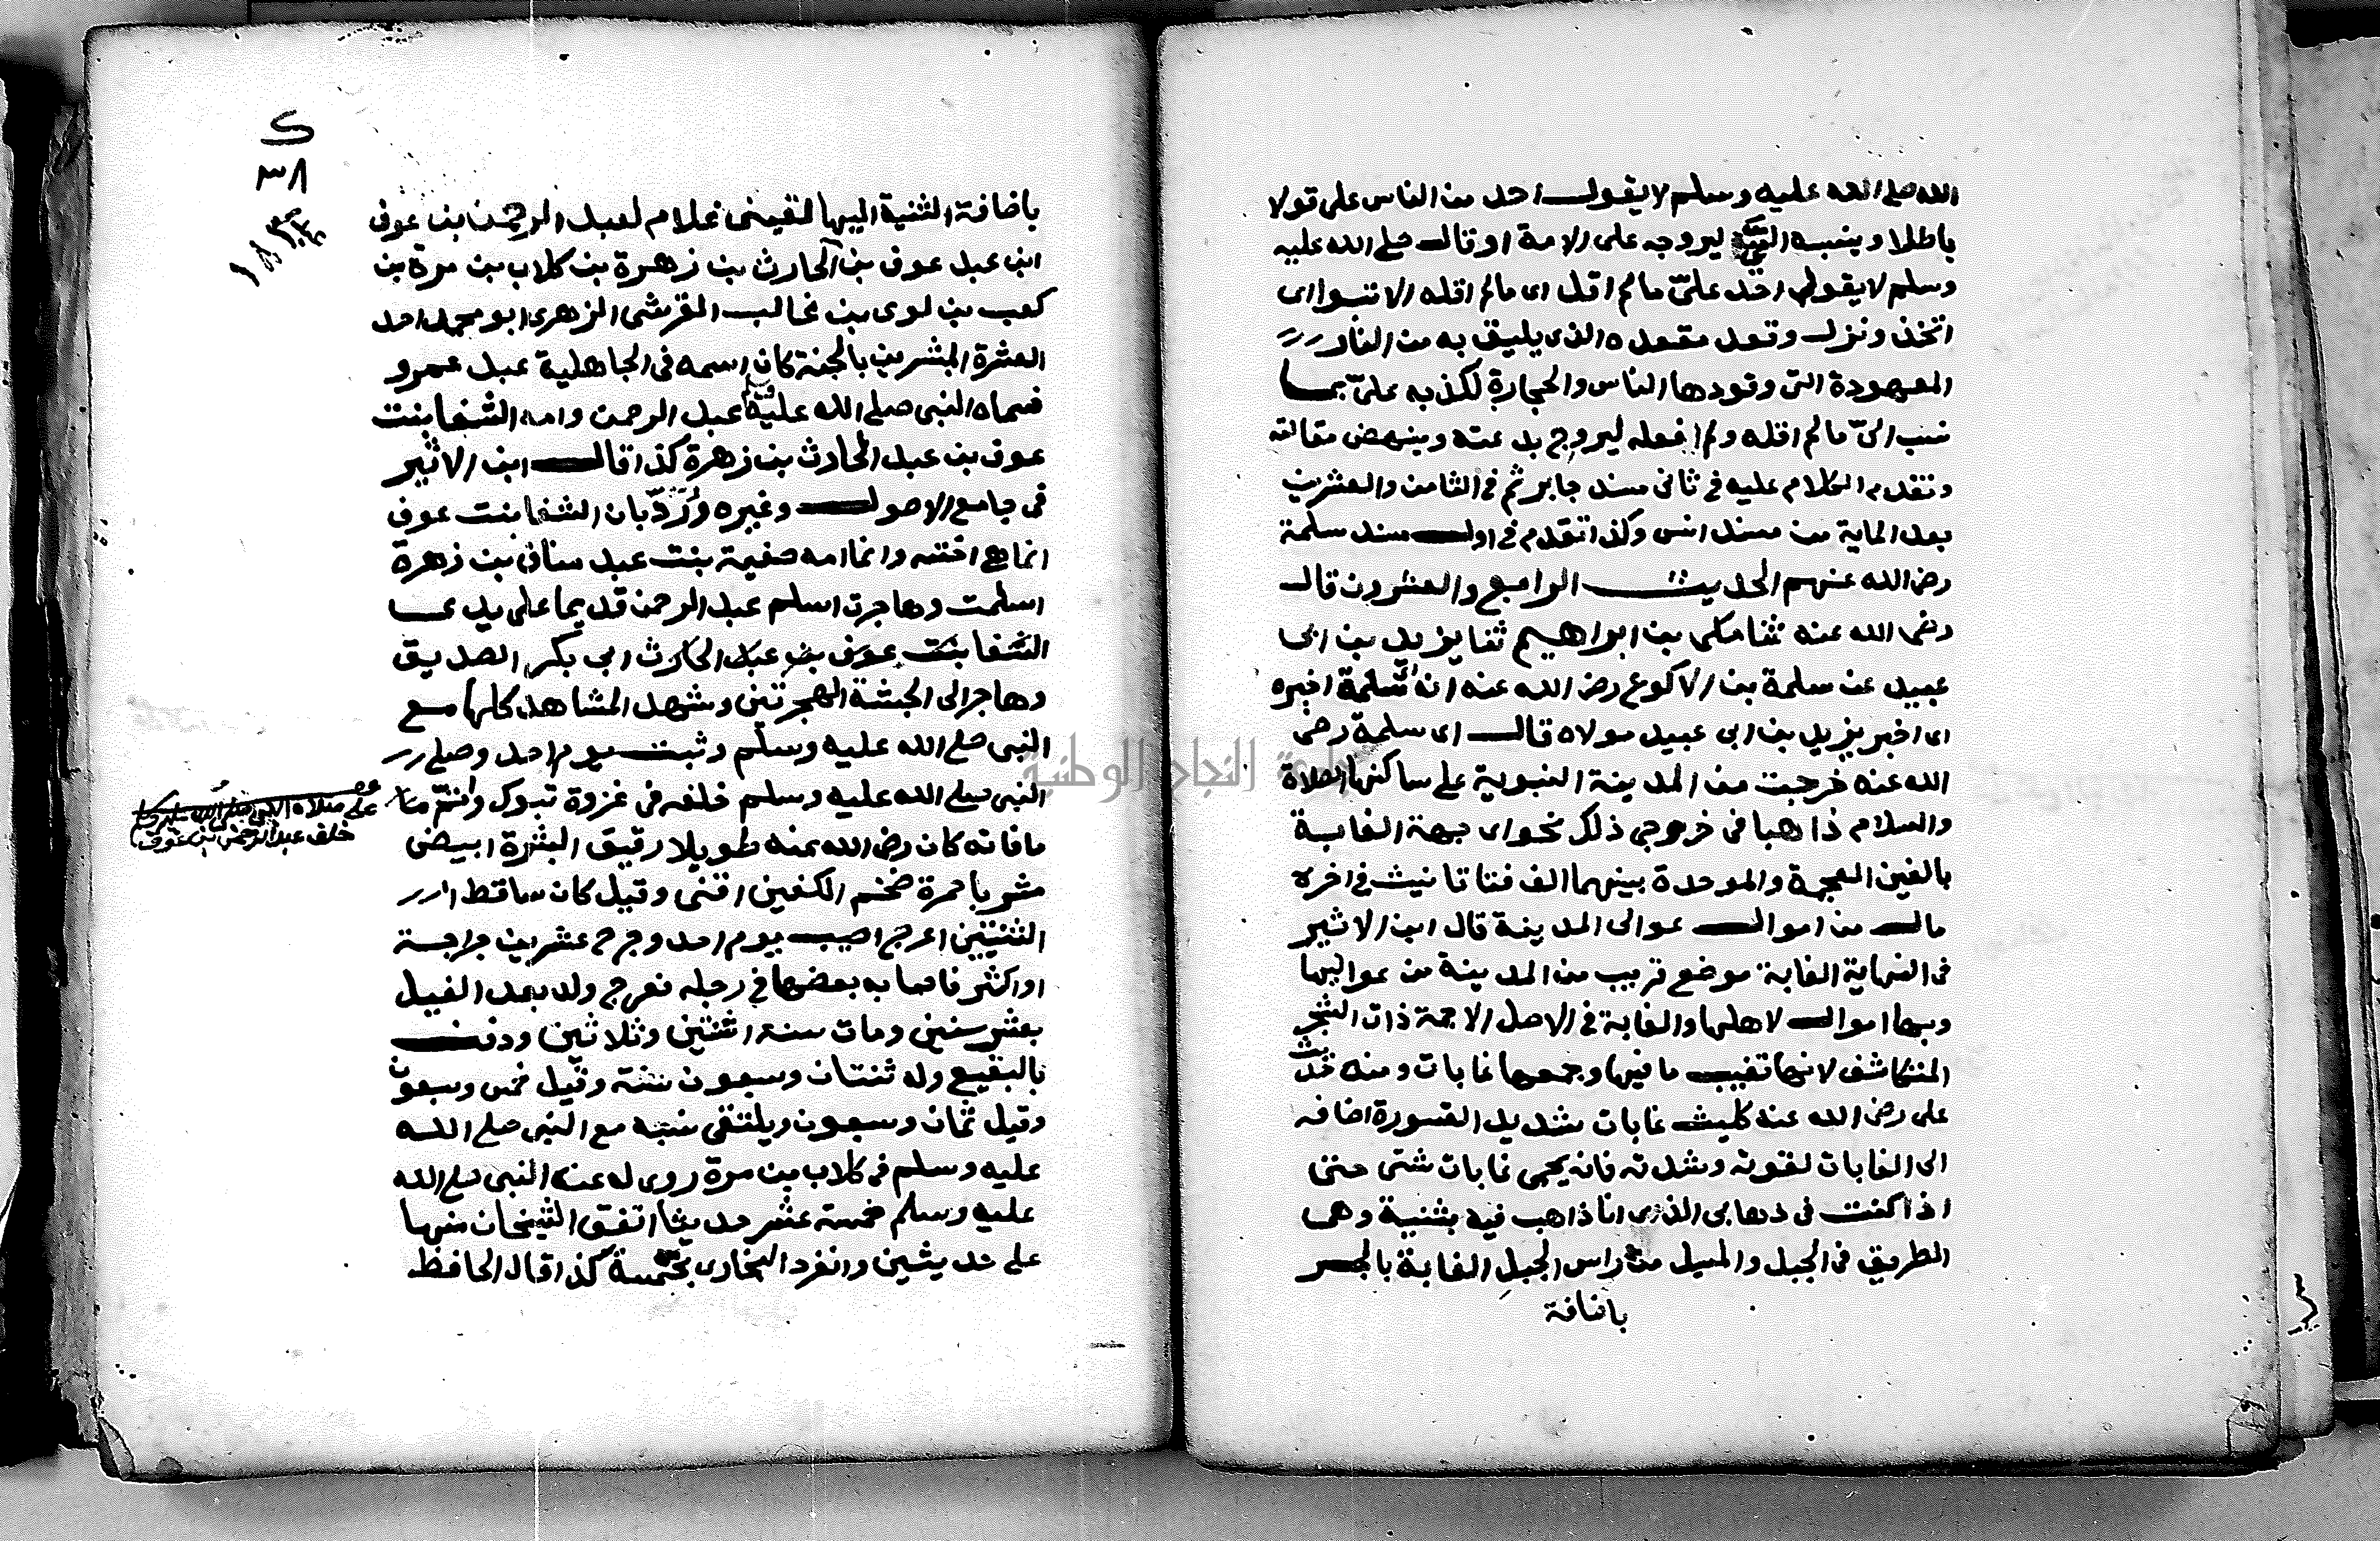 الله صلى الله عليه وسلم لا يقول احد من الناس على قولا
باطلا وينسبه الي ليروجه على الامة او قال صلى الله عليه
وسلم لا يقولن احد علىّ ما لم اقل اى ما لم اقله الا تبوا اى
اتخذ ونزل وقعد مقعده الذى يليق به من النار
المعهودة التى وقودها الناس والحجارة لكذبه علىّ بما
نسب الىّ ما لم اقله ولم افعله ليروج بدعته وينهض مقالته
وتقدم الكلام عليه فى ثانى مسند جابر ثم فى الثامن والعشرين
بعد الماية من مسند انس وكذا تقدم فى اول مسند سلمة
رضى الله عنهم الحديث الرابع والعشرون قال
رضى الله عنه ثنا مكى بن ابراهيم ثنا يزيد بن ابى
عبيد عن سلمة بن الاكوع رضى الله عنه انه اى سلمة اخبره
اى اخبر يزيد بن ابى عبيد مولاه قال اى سلمة رضى
الله عنه خرجت من المدينة النبوية على ساكنها الصلاة
والسلام ذاهبا فى خروجى ذلك نحو اى جهة الغابة
بالغين المعجمة والموحدة بينهما الف فتا تانيث فى اخره
مال من اموال عوالى المدينة قال ابن الاثير
فى النهاية الغابة موضع قريب من المدينة من عواليها
وبها اموال لاهلها والغابة فى الاصل الاجمة ذات الشجر
المتكاشف لانها تغيب ما فيها وجمعها غابات ومنه حديث
على رضى الله عنه كليث غابات شديد القسورة اضافه
الى الغابات لقوته وشدته فانه يحمى غابات شتى حتى
اذا كنت فى ذهابى الذى انا ذاهب فيه بثنية وهى
الطريق فى الجبل والمسيل من راس الجبل الغابة بالجر
باضافة
ك
٣٨
باضافة الثنية اليها لقينى غلام لعبد الرحمن بن عوف
ابن عبد عوف بن الحارث بن زهرة بن كلاب بن مرة بن
كعب بن لوى بن غالب القرشى الزهرى ابو محمد احد
العشرة المبشرين بالجنة كان اسمه فى الجاهلية عبد عمرو
فسماه النبى صلى الله عليه وسلم عبد الرحمن وامه الشفا بنت
عوف بن عبد الحارث بن زهرة كذا قال ابن الاثير
فى جامع الاصول وغيره ورُدّ بان الشفا بنت عوف
انما هى اخته وانما امه صفية بنت عبد مناف بن زهرة
اسلمت وهاجرت اسلم عبد الرحمن قديما على يد
الشفا بنت عوف بن عبد الحارث ابى بكر الصديق
وهاجر الى الحبشة الهجرتين وشهد المشاهد كلها مع
النبى صلى الله عليه وسلم وثبت يوم احد وصلى
النبى صلى الله عليه وسلم خلفه فى غزوة تبوك واتم
ما فاته كان رضى الله عنه طويلا رقيق البشرة ابيض
مشربا حمرة ضخم الكفين اقنى وقيل كان ساقط
الثنيتين اعرج اصيب يوم احد وجرح عشرين جراحة
او اكثر فاصابه بعضها فى رجله فعرج ولد بعد الفيل
بعشر سنين ومات سنة اثنتين وثلاثين ودفن
بالبقيع وله ثنتان وسبعون سنة وقيل خمس وسبعون
وقيل ثمان وسبعون ويلتقى نسبه مع النبى صلى الله
عليه وسلم فى كلاب بن مرة روى له عن النبى صلى الله
عليه وسلم خمسة عشر حديثا اتفق الشيخان منها
على حديثين وانفرد البخارى بخمسة كذا قال الحافظ
على صلاة النبى صلى الله عليه وسلم
خلف عبد الرحمن بن عوف
النجاح الوطنية